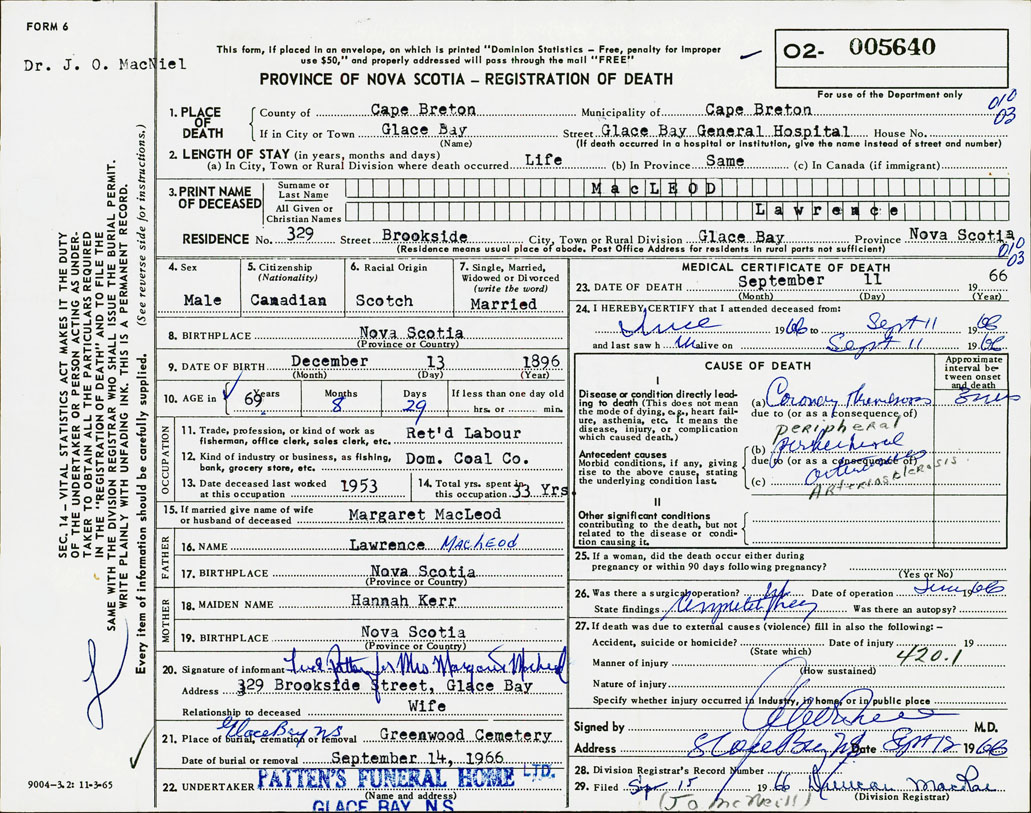 FORM 6
Dr. J. O. MacNiel
This form, if placed in an envelope, on which is printed "Dominion Statistics – Free, penalty for improper
use $50," and properly addressed will pass through the mail "FREE"
PROVINCE OF NOVA SCOTIA – REGISTRATION OF DEATH
02- 005640
For use of the Department only
010
03
1. PLACE OF DEATH
County of Cape Breton Municipality of Cape Breton
If in City or Town Glace Bay Street Glace Bay General Hospital House No.
(Name) (If death occurred in a hospital or institution, give the name instead of street and number)
2. LENGTH OF STAY (in years, months and days)
(a) In City, Town or Rural Division where death occurred Life (b) In Province Same (c) In Canada (if immigrant)
3. PRINT NAME OF DECEASED
Surname or Last Name MacLEOD
All Given or Christian Names Lawrence
RESIDENCE No. 329 Street Brookside City, Town or Rural Division Glace Bay Province Nova Scotia
(Residence means usual place of abode. Post Office Address for residents in rural parts not sufficient)
010
03
4. Sex
Male
5. Citizenship
(Nationality)
Canadian
6. Racial Origin
Scotch
7. Single, Married,
Widowed or Divorced
(write the word)
Married
8. BIRTHPLACE Nova Scotia
(Province or Country)
9. DATE OF BIRTH December 13 1896
(Month) (Day) (Year)
10. AGE in Years Months Days If less than one day old
69 8 29 hrs. or min.
OCCUPATION
11. Trade, profession, or kind of work as
fisherman, office clerk, sales clerk, etc. Ret'd Labour
12. Kind of industry or business, as fishing,
bank, grocery store, etc. Dom. Coal Co.
13. Date deceased last worked
at this occupation 1953
14. Total yrs. spent in
this occupation 33 Yrs
15. If married give name of wife
or husband of deceased Margaret MacLeod
FATHER
16. NAME Lawrence MacLeod
17. BIRTHPLACE Nova Scotia
(Province or Country)
MOTHER
18. MAIDEN NAME Hannah Kerr
19. BIRTHPLACE Nova Scotia
(Province or Country)
20. Signature of informant for Mrs. Margaret MacLeod
Address 329 Brookside Street, Glace Bay
Relationship to deceased Wife
Glace Bay NS
21. Place of burial, cremation or removal Greenwood Cemetery
Date of burial or removal September 14, 1966
22. UNDERTAKER PATTEN'S FUNERAL HOME LTD.
(Name and address)
GLACE BAY, N.S.
MEDICAL CERTIFICATE OF DEATH
23. DATE OF DEATH September 11 1966
(Month) (Day) (Year)
24. I HEREBY CERTIFY that I attended deceased from:
June 1966 to Sept 11 1966
and last saw h im alive on Sept 11 1966
CAUSE OF DEATH
Approximate
interval be-
tween onset
and death
I
Disease or condition directly lead-
ing to death (This does not mean
the mode of dying, e.g., heart fail-
ure, asthenia, etc. It means the
disease, injury, or complication
which caused death.)
(a) Coronary Thrombosis
due to (or as a consequence of)
peripheral
Antecedent causes
Morbid conditions, if any, giving
rise to the above cause, stating
the underlying condition last.
(b) peripheral
due to (or as a consequence of)
(c)
Arteriosclerosis.
II
Other significant conditions
contributing to the death, but not
related to the disease or condi-
tion causing it.
25. If a woman, did the death occur either during
pregnancy or within 90 days following pregnancy?
(Yes or No)
26. Was there a surgical operation? Date of operation June 1966
State findings Was there an autopsy?
27. If death was due to external causes (violence) fill in also the following:–
Accident, suicide or homicide? Date of injury 19
(State which)
Manner of injury 420.1
(How sustained)
Nature of injury
Specify whether injury occurred in industry, in home, or in public place
Signed by M.D.
Address Glace Bay NS Date Sept 12 1966
28. Division Registrar's Record Number
29. Filed Sep 15 1966 Duncan MacRae
(Division Registrar)
(Jo McNeill)
SEC. 14 – VITAL STATISTICS ACT MAKES IT THE DUTY
OF THE UNDERTAKER OR PERSON ACTING AS UNDER-
TAKER TO OBTAIN ALL THE PARTICULARS REQUIRED
IN THE "REGISTRATION OF DEATH" AND TO FILE THE
SAME WITH THE DIVISION REGISTRAR WHO SHALL ISSUE THE BURIAL PERMIT.
WRITE PLAINLY WITH UNFADING INK. THIS IS A PERMANENT RECORD.
Every item of information should be carefully supplied. (See reverse side for instructions.)
9004–3.2: 11-3-65